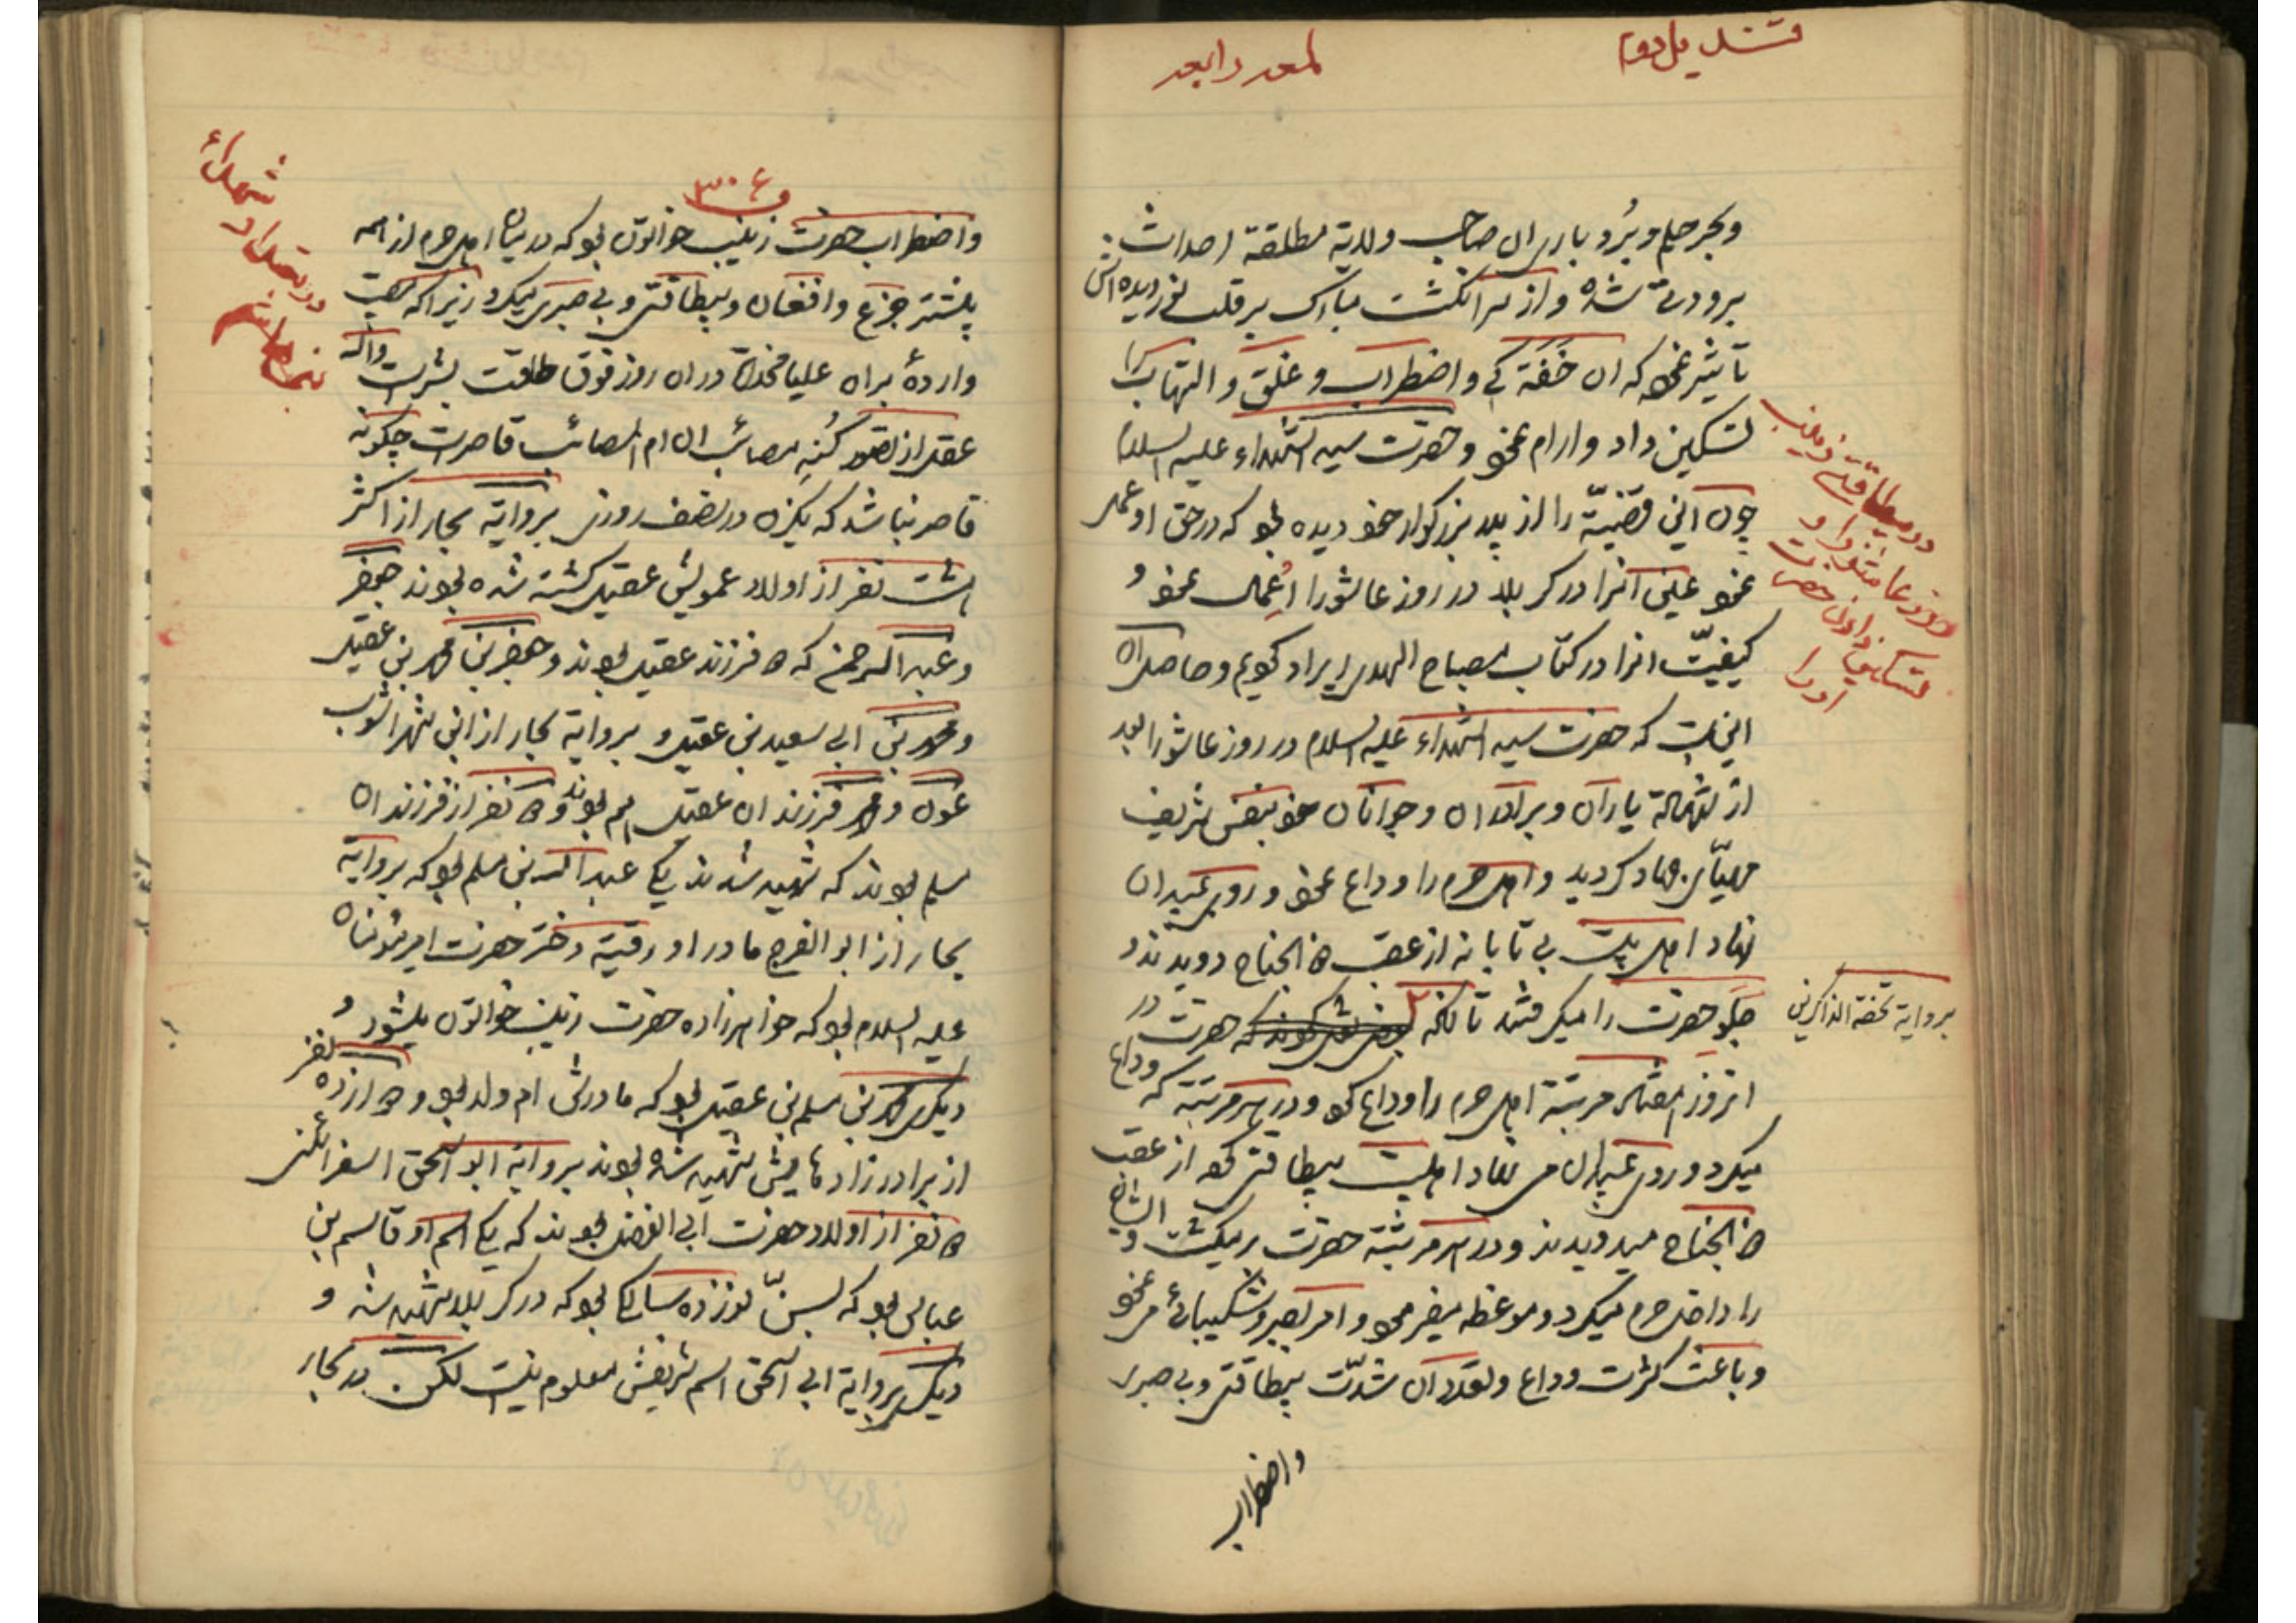 قندیل دوم
لمعه رابعه
وبحر حلم وبُرد باری ان صاحب ولایة مطلقة احداث
برودت شده واز سر انکشت مبارک بر قلب نور دیده اش
تاثیر نمود که ان خفقه کی و اضطراب و غلق و التهاب را
تسکین داد وارام نمود وحضرت سید الشهداء علیه السلام
چون این قضیّة را از پدر بزرکوار خود دیده بود که در حق او عمل
نمود عین انرا در کربلا در روز عاشورا اعمال نمود و
کیفیّت انرا در کتاب مصباح الهدی ایراد کویم وحاصل ان
این است که حضرت سید الشهداء علیه السلام در روز عاشورا بعد
از شهادة یاران وبرادران وجوانان خود بنفس شریف
مهیّای جهاد کردید واهل حرم را وداع نمود وروی بمیدان
نهاد اهل بیت بی تابانه از عقب ذو الجناح دویدند و
جلو حضرت را میکرفتند تا انکه حضرت در
انروز هفتاد مرتبة اهل حرم را وداع کرد ودر هر مرتبة که وداع
میکرد وروی بمیدان می نهاد اهلبیت بیطاقتی کرد از عقب
ذو الجناح میدویدند ودر هر مرتبة حضرت بر میکشت و ایشان
را داخل حرم میکرد وموعظه میفرمود وامر بصبر وشکیبائی می نمود
وباعث کثرت وداع وتعدد ان شدّت بیطاقتی وبی صبری
واضطراب
در بیطاقتی زینب
در روز عاشورا و
تسکین دادن حضرت
اورا
بروایة تحفة الذاکرین
۳۰۶
واضطراب حضرت زینب خواتون بود که در میان اهل حرم از همه
بیشتر جزع وافغان وبیطاقتی وبی صبری میکرد زیرا که مصیبت
واردهٔ بران علیا مخدرة در ان روز فوق طاقت بشر است واکه
عقل از تصور کُنهِ مصائب ان ام المصائب قاصر است چکونه
قاصر نباشد که یکزن در نصف روزی بروایة بحار از اکثر
هشت نفر از اولاد عمویش عقیل کشته شده بودند جعفر
وعبد الرحمن که دو فرزند عقیل بودند وجعفر بن محمد بن عقیل
ومحمد بن ابی سعید بن عقیل و بروایة بحار از ابن شهر اشوب
عون ومحمد فرزندان عقیل هم بودند ودو نفر از فرزندان
مسلم بودند که شهید شدند یکی عبد الله بن مسلم بود که بروایة
بحار از ابو الفرج مادر او رقیة دختر حضرت امیر مؤمنان
علیه السلام بود که خواهرزاده حضرت زینب خواتون میشود و
دیکری محمد بن مسلم بن عقیل بود که مادرش ام ولد بود و دوازده نفر
از برادرزادهایش شهید شده بودند بروایة ابو اسحق اسفرائنی
دو نفر از اولاد حضرت ابی الفضل بودند که یکی اسم او قاسم بن
عباس بود که بسنّ نوزده سالکی بود که در کربلا شهید شد و
دیکری بروایة ابی اسحق اسم شریفش معلوم نیست لکن در بحار
در تعداد
شهدای
بنی هاشم